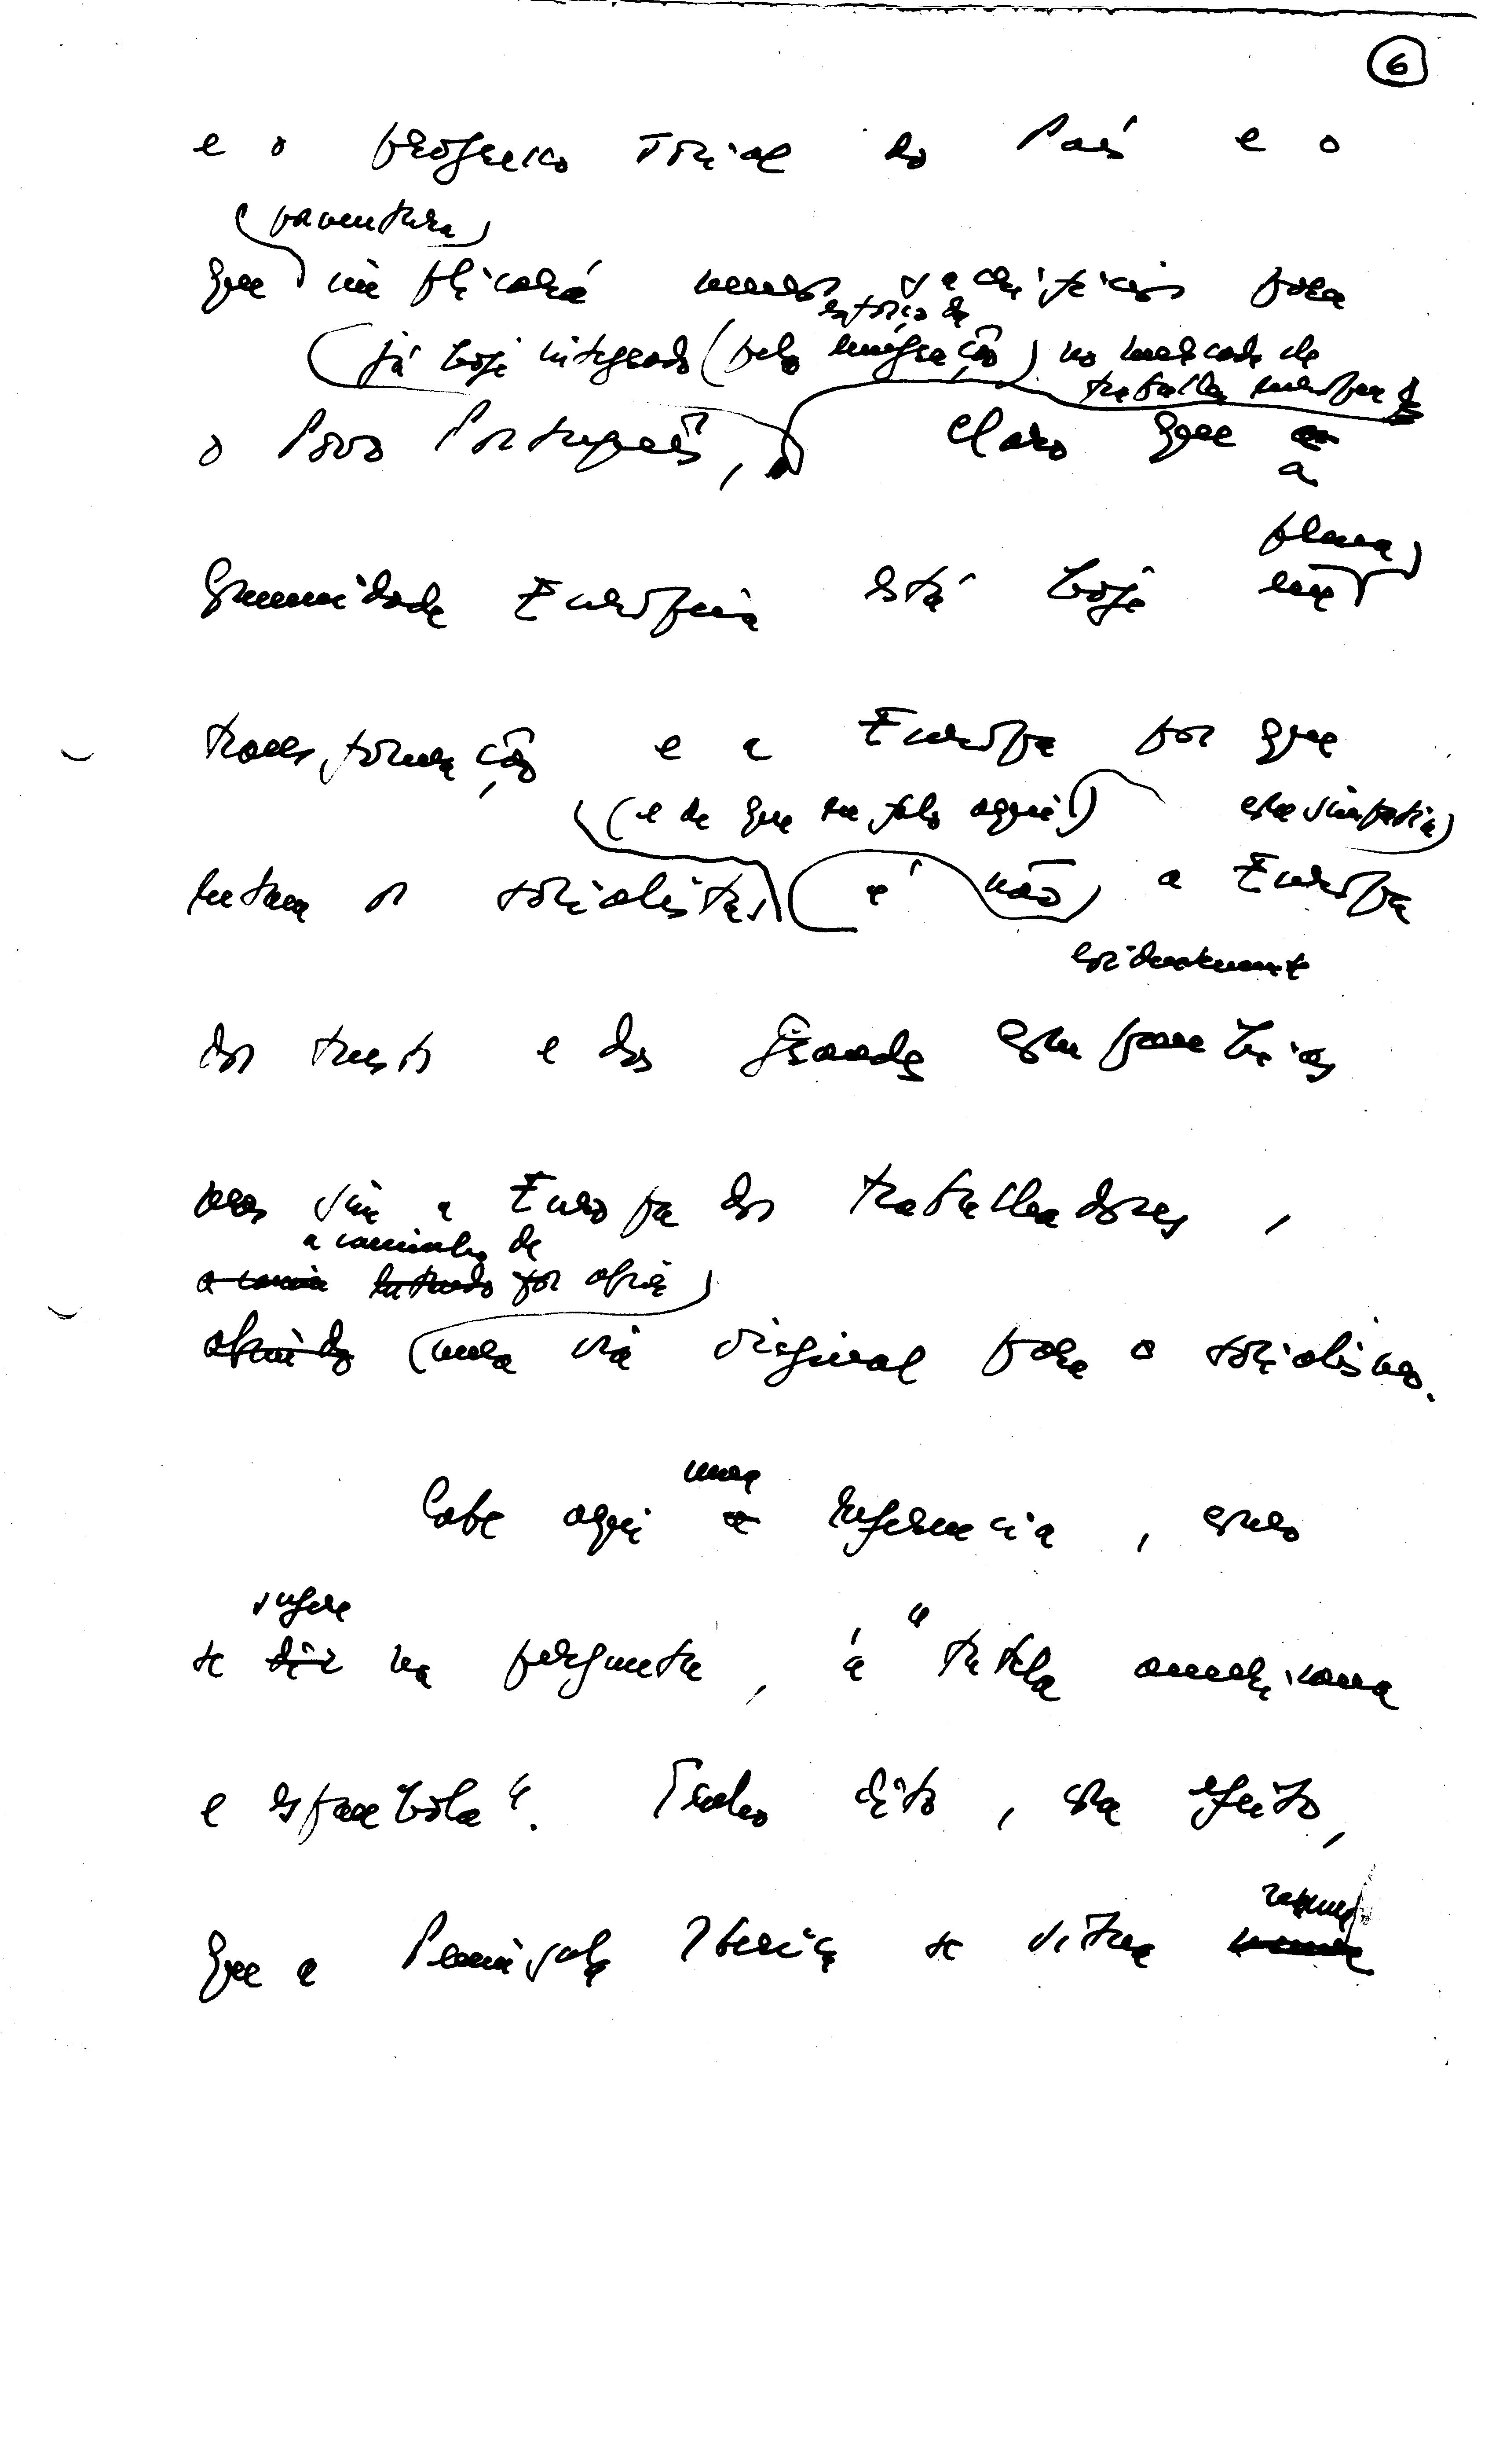 6
e o progresso social do País e o
porventura
que implicará menos sacrifícios para
esforço da
já hoje integrado (pela emigração) no mercado de
trabalho europeu
o Povo Português, Claro que a
plena
Comunidade Europeia está hoje em
transformação e a Europa por que
(e de que eu falo aqui!) esta simpatia
lutam os socialistas é não a Europa
evidentemente
dos trusts e das grandes companhias
mas sim a Europa dos trabalhadores,
a caminho de
a camin lutando por abrir
abrindo uma via original para o socialismo.
uma
Cabe aqui a referência, como
sugere
se diz na pergunta, à "tutela americana
e espanhola". Tenho dito, com efeito,
que a Península Ibérica se situa numa